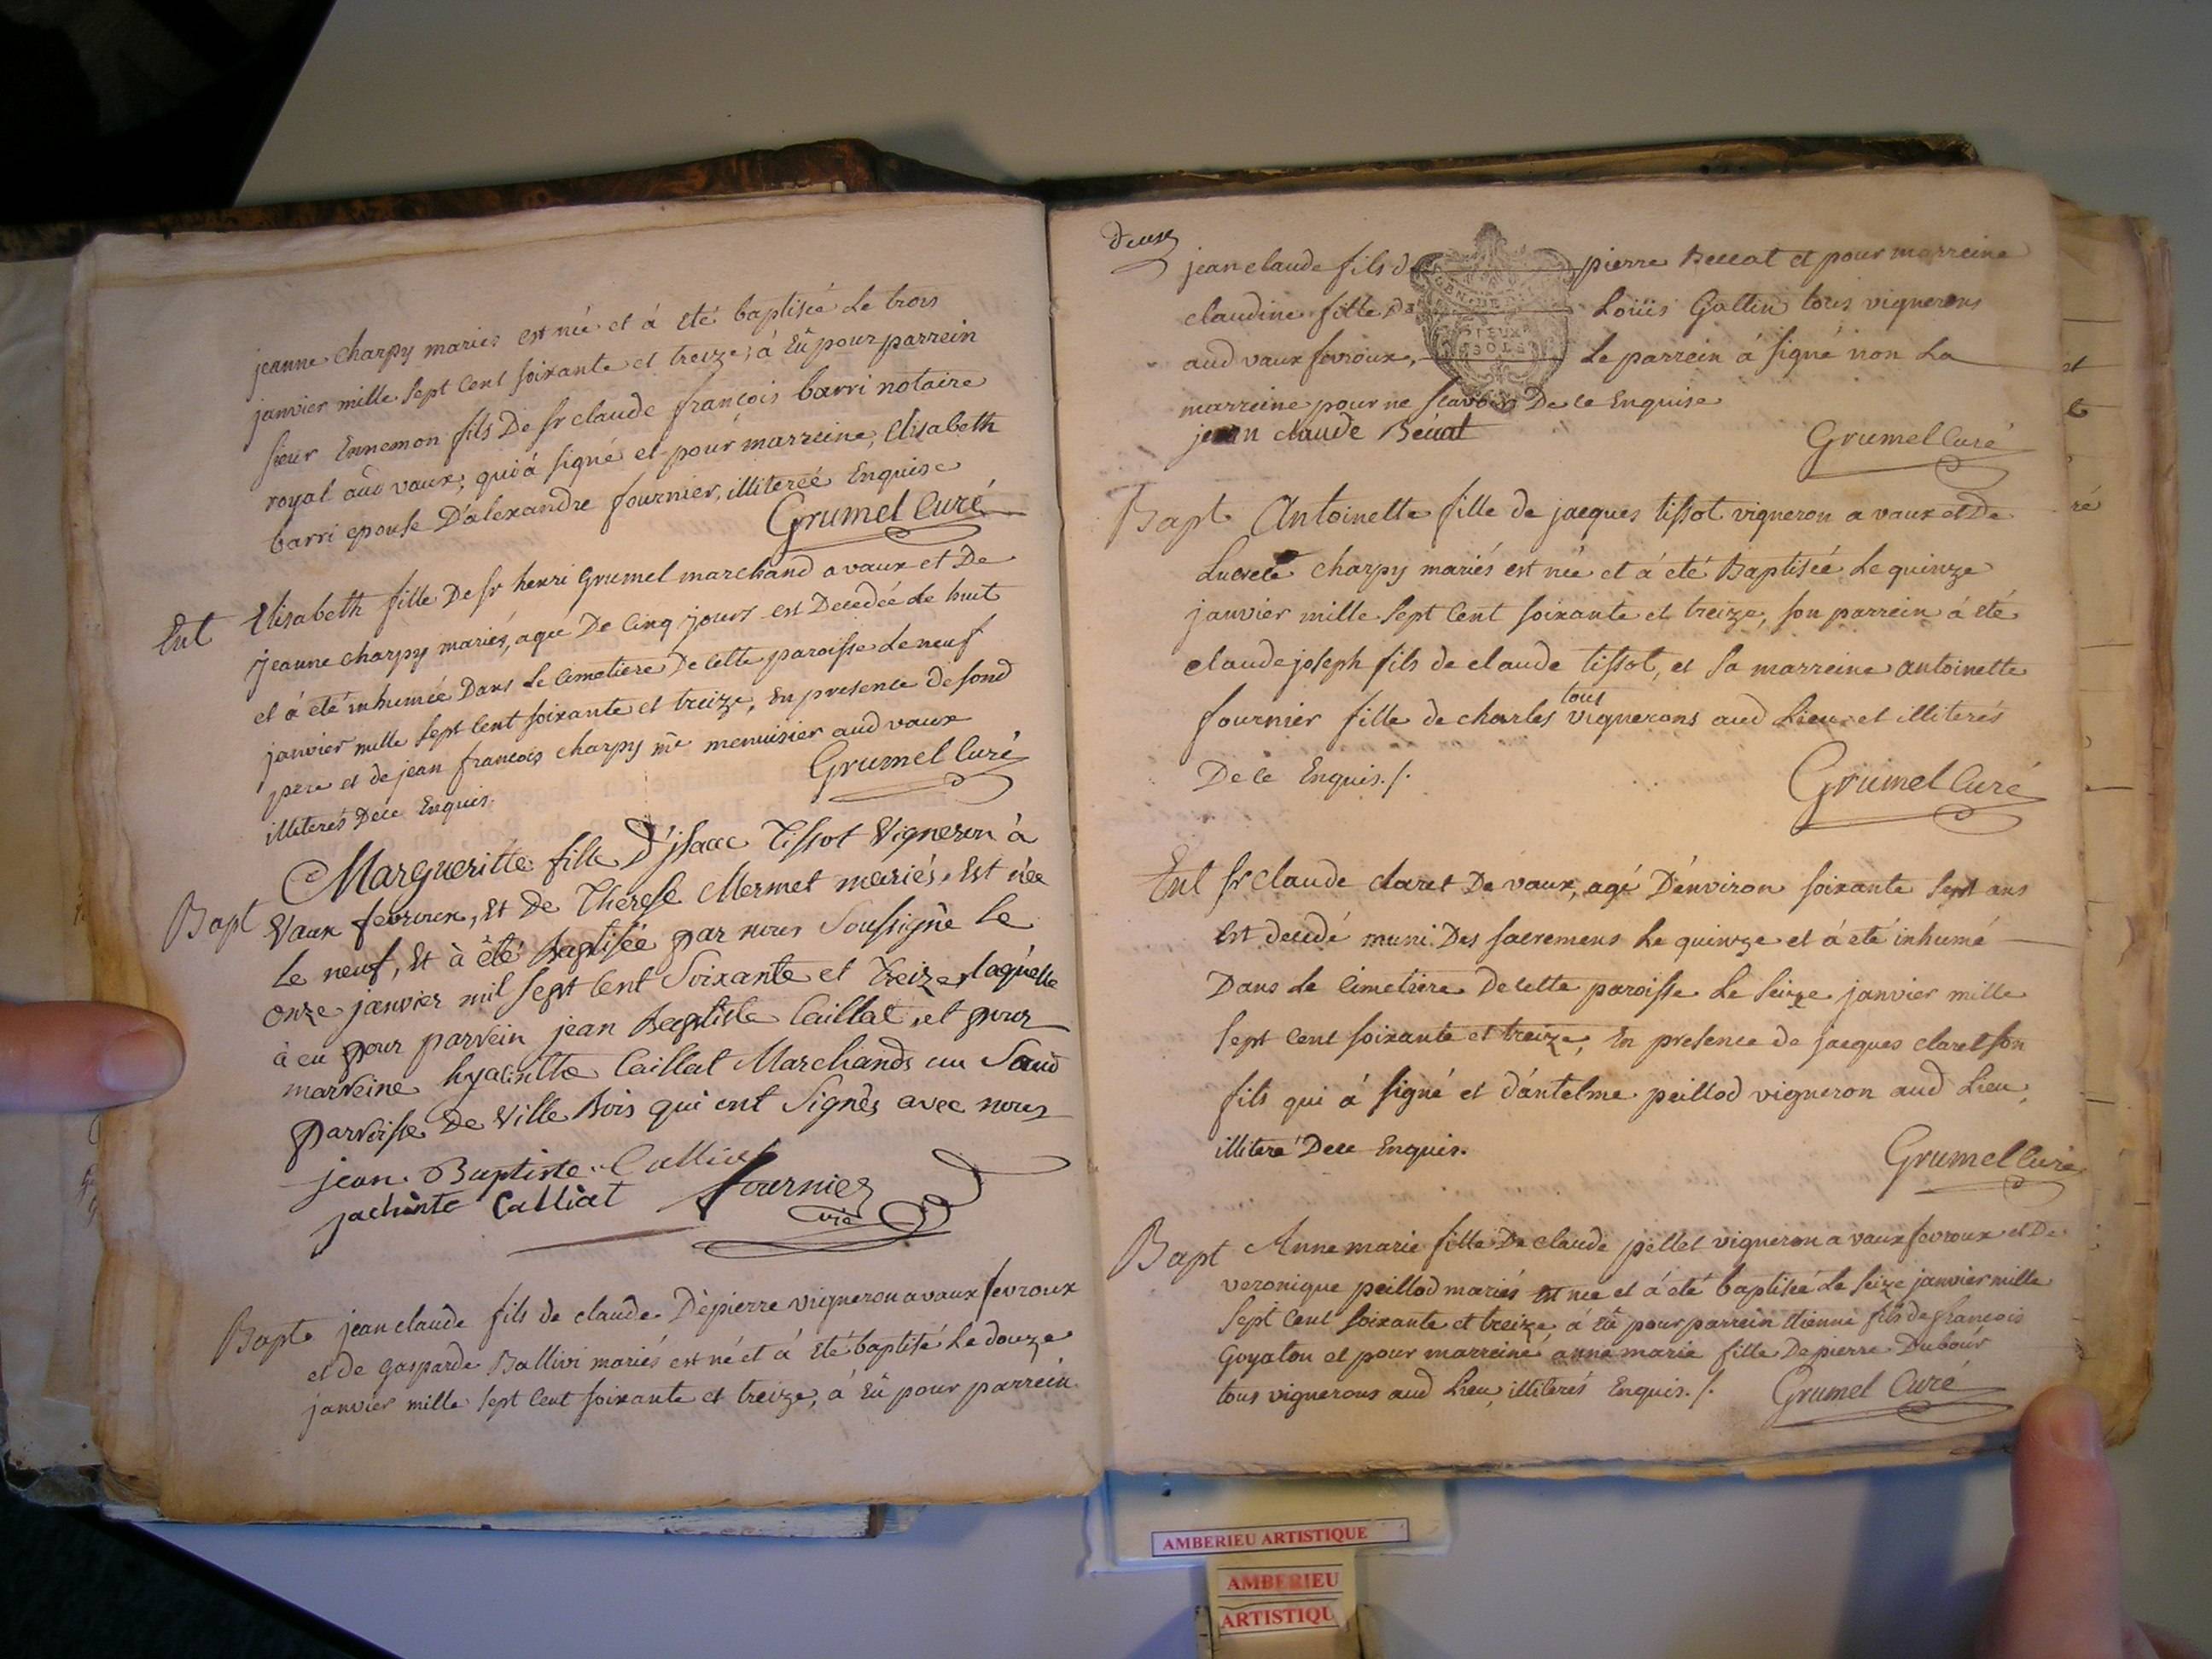 jeanne charpy mariés est née et á eté baptisée le trois
janvier mille sept cent soixante et treize; á Eû pour parrein
sieur Ennemon fils De sr claude françois barri notaire
royal aud vaux; qui á signé et pour marreine, Elisabeth
barri epouse D'alexandre fournier, illiterée Enquise
Grumel Curé
Ent Elisabeth fille De sr henri Grumel marchand a vaux et De
jeanne charpy mariés, agée De Cinq jours est Decedée le huit
et á eté inhumée Dans le Cimetiere De cette paroisse le neuf
janvier mille sept Cent soixante et treize, En presence de fond
pere et de jean francois charpy me menuisier aud vaux
illiterés Dece Enquis.
Grumel Curé
Bapt Margueritte fille D'jsaac Tissot Vigneron à
Vaux fevroux, Et De Therese Mermet mariés, Est née
le neuf, Et à êté Baptisée par nous Soussigné le
onze janvier mil sept Cent Soixante et Treize, laquelle
à eu pour parrein jean Baptiste Caillat, et pour
marreine hyacintte Caillat Marchands au Saud
parroisse De Ville Bois qui ont Signés avec nous
jean Baptiste Calliat
jachinte Calliat Fournier
vic
Bapt jean claude fils de claude Dépierre vigneron a vaux fevroux
et de Gasparde Ballivi mariés est né et á eté baptisé le douze
janvier mille sept Cent soixante et treize, á Eû pour parrein
deux
jean claude fils d pierre Beccat et pour marreine
claudine fille de Loüis Gallin tous vignerons
aud vaux fevroux, le parrein á signé non La
marreine pour ne scavoir De ce Enquise
jean claude Béccat
Grumel Curé
GEN. DE
DEUX
SOLS
Bapt Antoinette fille de jacques tissot vigneron a vaux et De
Lucrece charpy mariés est née et á eté Baptisée le quinze
janvier mille sept Cent soixante et treize, son parrein á eté
claude joseph fils de claude tissot, et sa marreine antoinette
fournier fille de charles tous vignerons aud Lieu et illiterés
De ce Enquis./.
Grumel Curé
Ent sr claude claret De vaux, agé D'environ soixante sept ans
Est decedé muni Des sacremens le quinze et á eté inhumé
Dans le Cimetiere De cette paroisse le seize janvier mille
sept cent soixante et treize, En presence de jacques claret son
fils qui á signé et d'antelme peillod vigneron aud Lieu,
illiteré Dece Enquis.
Grumel Curé
Bapt Anne marie fille De claude pellet vigneron a vaux fevroux et De
veronique peillod mariés est née et á eté baptisée le seize janvier mille
sept Cent soixante et treize á Eû pour parrein Etienne fils de francois
Goyaton et pour marreine anne marie fille De pierre Dubour
tous vignerons aud Lieu, illiterés Enquis./.
Grumel Curé
et
ré
AMBERIEU ARTISTIQUE
AMBERIEU
ARTISTIQU